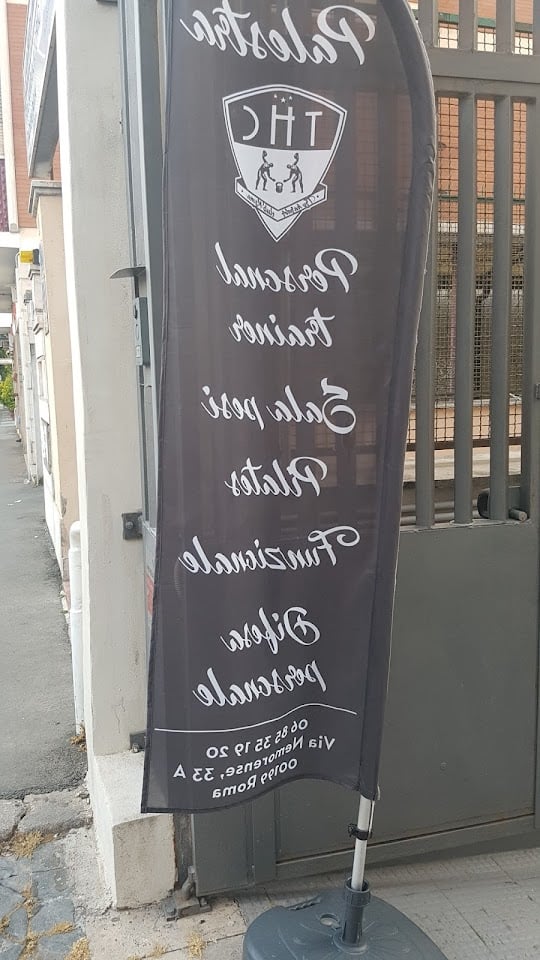 Palestra
THC
Personal
trainer
Sala pesi
Pilates
Funzionale
Difesa
personale
06 85 35 19 20
Via Nemorense, 33 A
00199 Roma